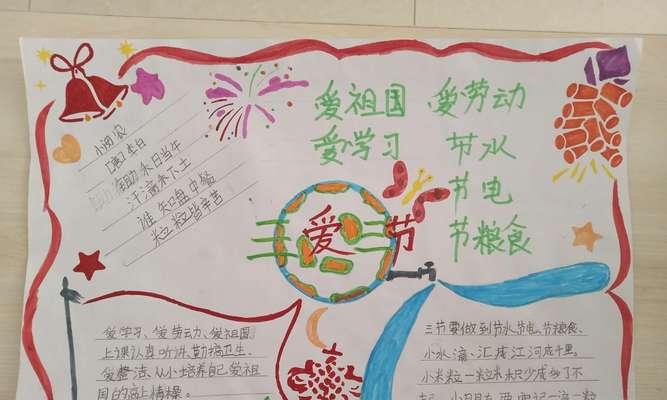 小闵农
[唐]李白
禾日当午
汗滴禾下土
谁知盘中餐
粒粒皆辛苦
爱祖国 爱劳动
爱学习 节水
节电
节粮食
三爱三节
爱学习、爱劳动、爱祖国
上课认真听讲、勤搞卫生、
爱整洁、从小培养自己爱祖
国的高上情操。
三节要做到节水节电、节粮食、
小水滴,汇成江河成千里。
小米粒一粒米积少成多了不